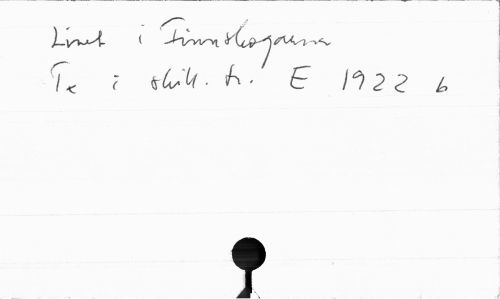 Livet i Finnskogarna
Te i skill. tr. E 1922 b